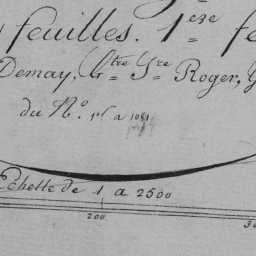 feuilles. 1ere fe
Demay, Gtre Sre Roger, G
du N.o 1er a 1081
Echelle de 1 a 2500
200